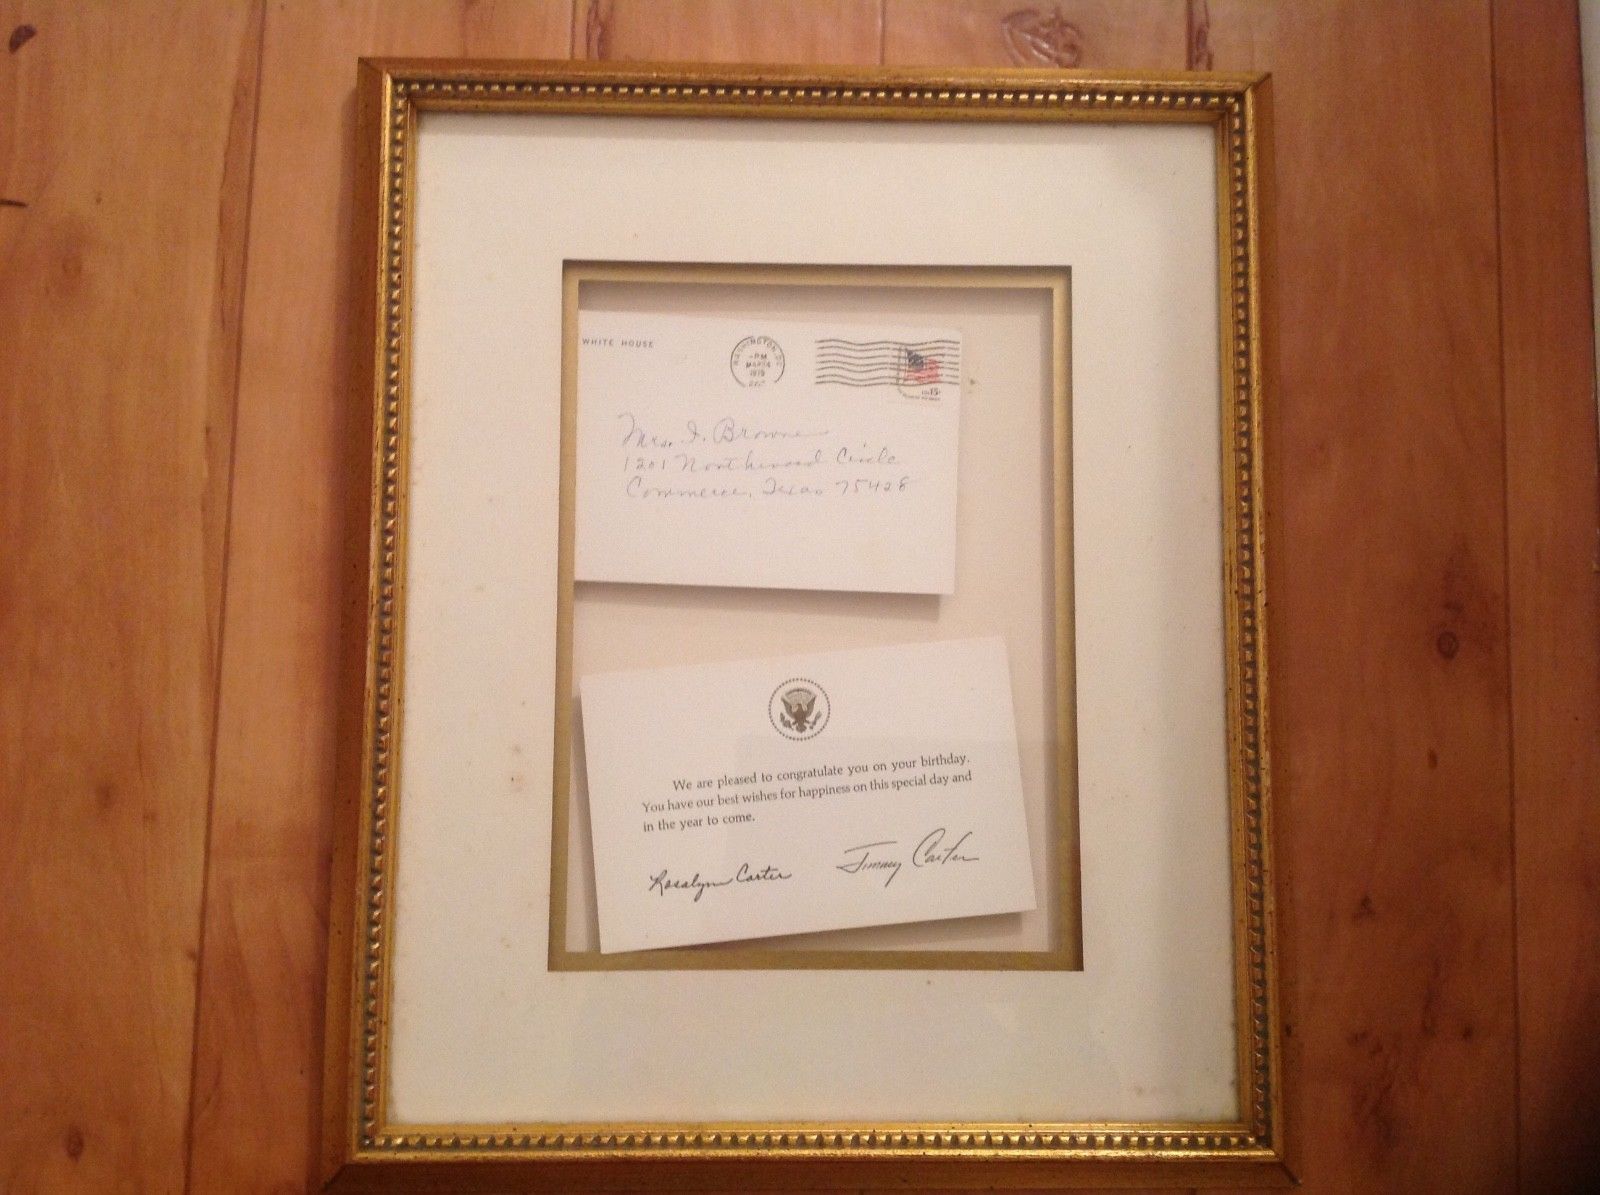 WHITE HOUSE
WASHINGTON, DC
PM
1979
15¢
Mrs. I. Browne
1201 Northwood Circle
Commerce, Texas 75428
We are pleased to congratulate you on your birthday.
You have our best wishes for happiness on this special day and
in the year to come.
Rosalynn Carter
Jimmy Carter